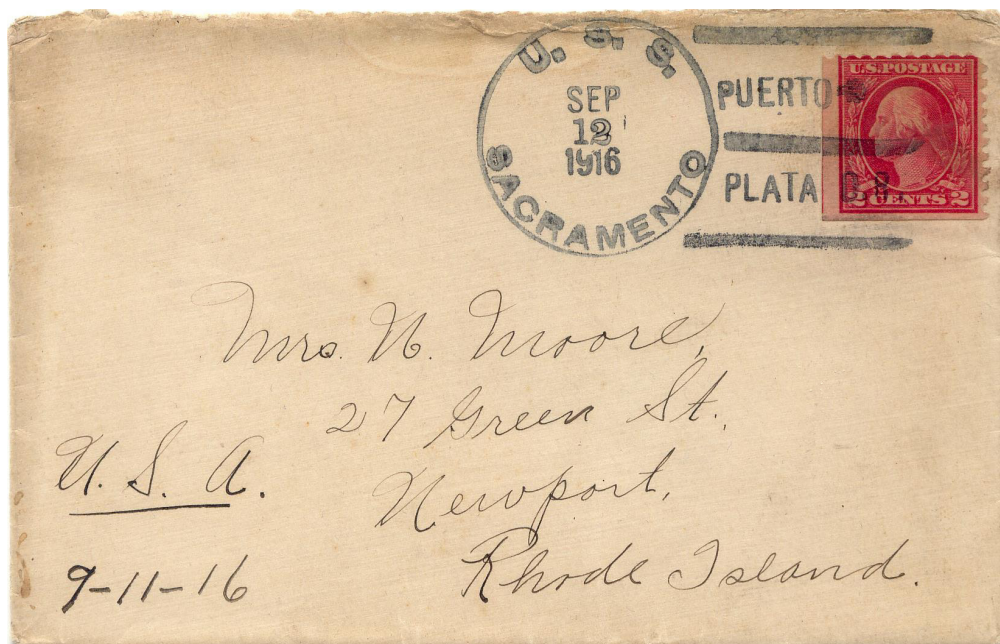 U. S. S.
SACRAMENTO
SEP
12
1916
PUERTO
PLATA D.R.
U.S.POSTAGE
2 CENTS 2
Mrs. N. Moore,
27 Green St.,
Newport,
Rhode Island.
U. S. A.
9-11-16